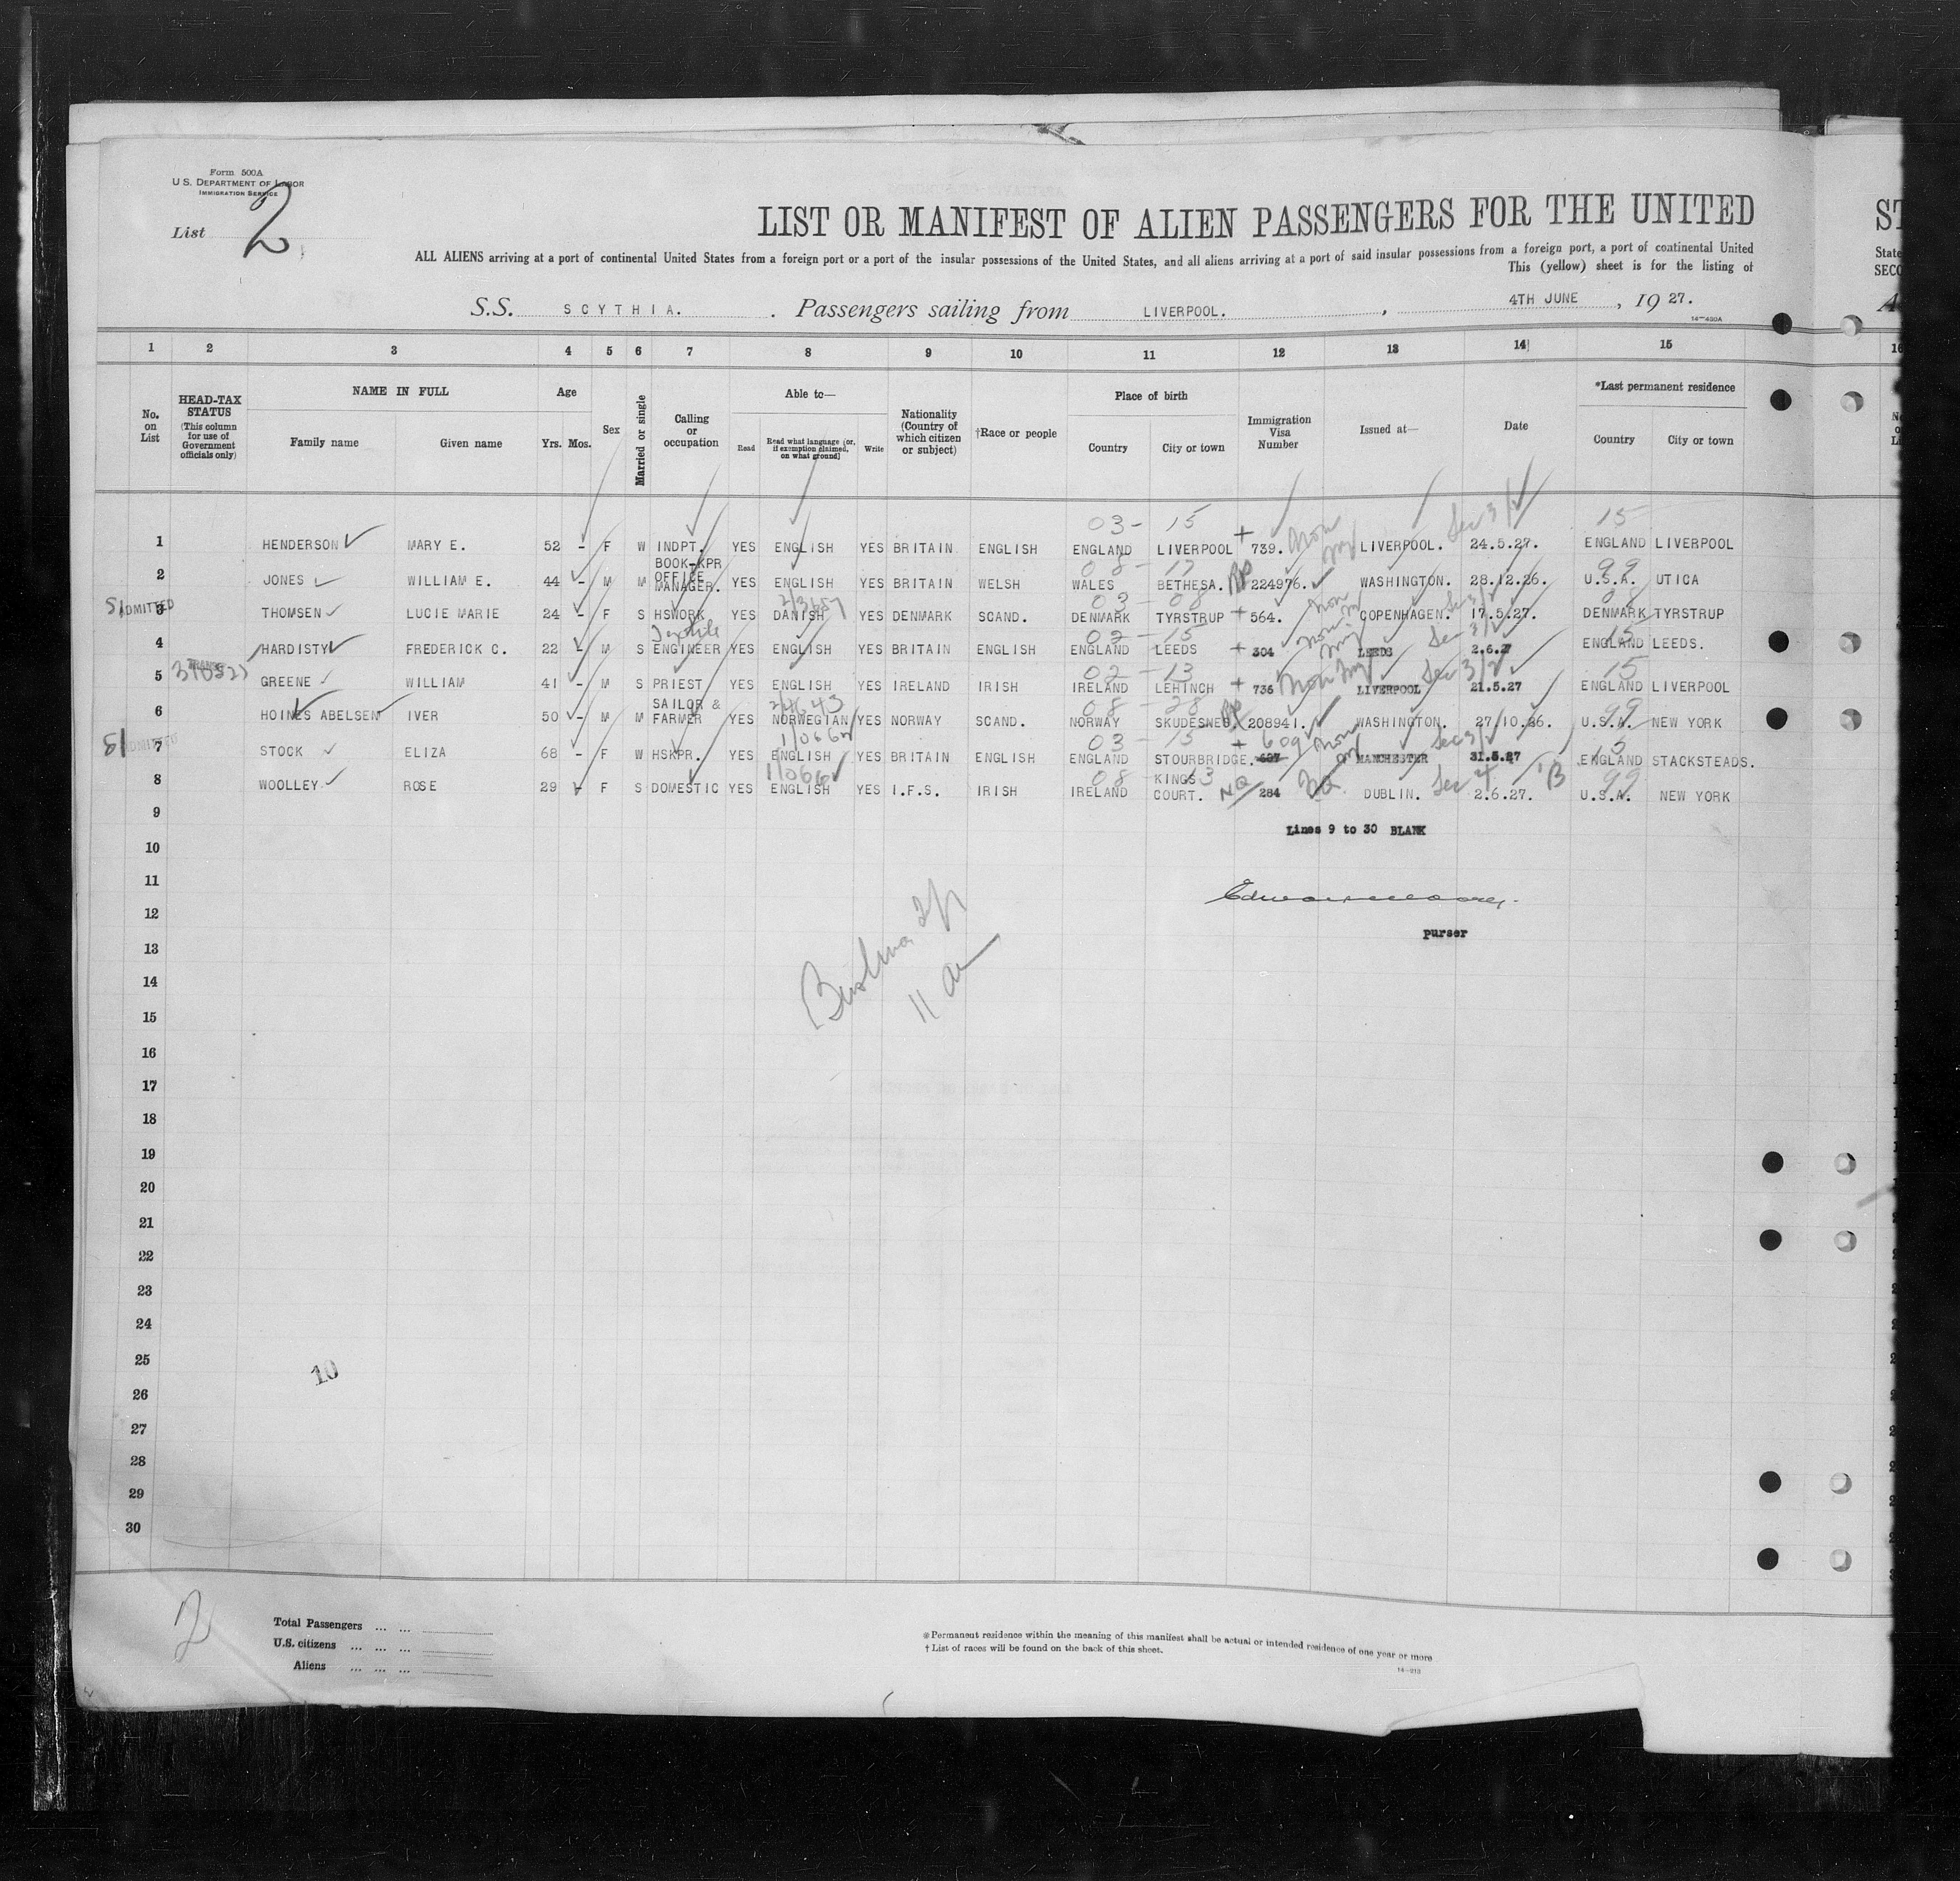 Form 500A
U. S. DEPARTMENT OF LABOR
IMMIGRATION SERVICE
List 2
LIST OR MANIFEST OF ALIEN PASSENGERS FOR THE UNITED
ST
ALL ALIENS arriving at a port of continental United States from a foreign port or a port of the insular possessions of the United States, and all aliens arriving at a port of said insular possessions from a foreign port, a port of continental United
State
This (yellow) sheet is for the listing of
SECO
S.S. SCYTHIA. . Passengers sailing from LIVERPOOL. , 4TH JUNE , 19 27.
14-480A
1 2 3 4 5 6 7 8 9 10 11 12 13 14 15 16
No. on List
HEAD-TAX STATUS (This column for use of Government officials only)
NAME IN FULL Family name Given name
Age Yrs. Mos.
Sex
Married or single
Calling or occupation
Able to— Read Read what language [or, if exemption claimed, on what ground] Write
Nationality (Country of which citizen or subject)
†Race or people
Place of birth Country City or town
Immigration Visa Number
Issued at—
Date
*Last permanent residence Country City or town
03 - 15 15
1 HENDERSON MARY E. 52 - F W INDPT. YES ENGLISH YES BRITAIN ENGLISH ENGLAND LIVERPOOL + 739. Non Img LIVERPOOL. Sec 3/2 24.5.27. ENGLAND LIVERPOOL
08 - 17 99
2 JONES WILLIAM E. 44 - M M BOOK-KPR OFFICE MANAGER. YES ENGLISH YES BRITAIN WELSH WALES BETHESA. RP 224976. WASHINGTON. 28.12.26. U.S.A. UTICA
03 - 08 08
SI ADMITTED 3 THOMSEN LUCIE MARIE 24 - F S HSWORK YES DANISH YES DENMARK SCAND. DENMARK TYRSTRUP + 564. Non Im COPENHAGEN. Sec 3/2 17.5.27. DENMARK TYRSTRUP
02 - 15 15
4 HARDISTY FREDERICK C. 22 - M S Textile ENGINEER YES ENGLISH YES BRITAIN ENGLISH ENGLAND LEEDS + 304 Non Img LEEDS Sec 3/2 2.6.27 ENGLAND LEEDS.
02 - 13 15
5 GREENE WILLIAM 41 - M S PRIEST YES ENGLISH YES IRELAND IRISH IRELAND LEHINCH + 736 Non Img LIVERPOOL Sec 3/2 21.5.27 ENGLAND LIVERPOOL
08 - 28 99
6 HOINES ABELSEN IVER 50 - M M SAILOR & FARMER YES NORWEGIAN YES NORWAY SCAND. NORWAY SKUDESNES. RP 208941. WASHINGTON. 27/10.26. U.S.A. NEW YORK
03 - 15 15
SI ADMITTED 7 STOCK ELIZA 68 - F W HSKPR. YES ENGLISH YES BRITAIN ENGLISH ENGLAND STOURBRIDGE. + 607 609 Non Im MANCHESTER Sec 3/2 31.5.27 ENGLAND STACKSTEADS.
08 - 13 99
8 WOOLLEY ROSE 29 - F S DOMESTIC YES ENGLISH YES I.F.S. IRISH IRELAND KINGS COURT. NQ 284 NQ DUBLIN. Sec 4 B 2.6.27. U.S.A. NEW YORK
9
Lines 9 to 30 BLANK
10
11
12
purser
13
11 am
14
15
16
17
18
19
20
21
22
23
24
25
10
26
27
28
29
30
2
Total Passengers ... ...
U.S. citizens ... ... ...
Aliens ... ... ...
*Permanent residence within the meaning of this manifest shall be actual or intended residence of one year or more
†List of races will be found on the back of this sheet.
14-913